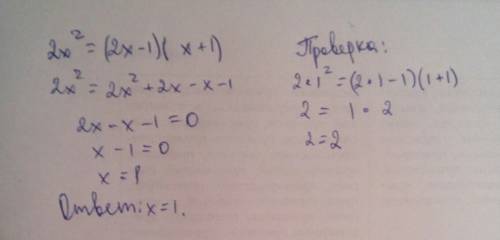 2x² = (2x-1)(x+1)
2x² = 2x² + 2x - x - 1
2x - x - 1 = 0
x - 1 = 0
x = 1
Ответ: x = 1.
Проверка:
2•1² = (2•1-1)(1+1)
2 = 1 • 2
2 = 2